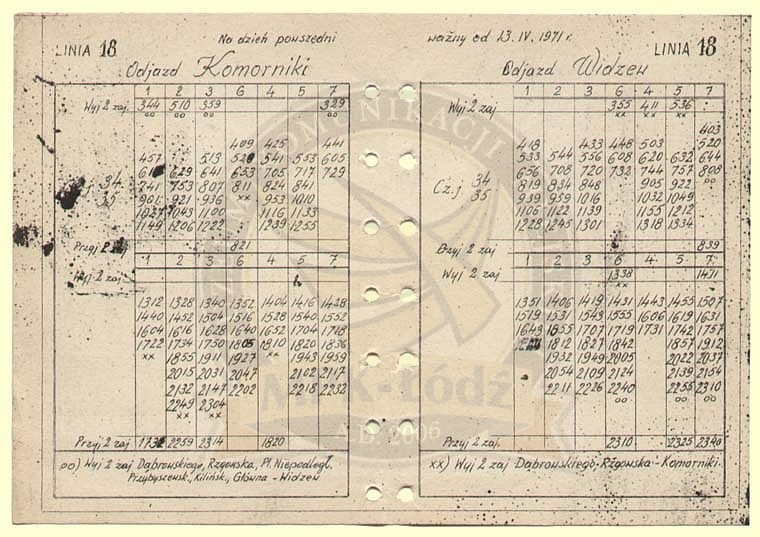 LINIA 18
Na dzień powszedni
Odjazd Komorniki
1 2 3 6 4 5 7
Wyj 2 zaj. 344 510 359 329
oo oo oo
409 425 441
457 513 541 553 605
629 641 653 705 717 729
741 753 807 811 824 841
Cz.j 34
35
901 921 936 xx 953 1010
1027 1043 1100 1116 1133
1149 1206 1222 1239 1255
Przyj 2 zaj 821
1 2 3 6 4 5 7
Wyj 2 zaj
1312 1328 1340 1352 1404 1416 1428
1440 1452 1504 1516 1528 1540 1552
1604 1616 1628 1640 1652 1704 1718
1722 1734 1750 1805 1810 1820 1836
xx 1855 1911 1927 xx 1943 1959
2015 2031 2047 2102 2117
2132 2147 2202 2218 2232
2249 2304
xx xx
Przyj 2 zaj 2259 2314 1820
oo) Wyj 2 zaj Dąbrowskiego, Rzgowska, Pl. Niepodległ.
Przybyszewsk., Kilińsk., Główna - Widzew
ważny od 13. IV. 1971 r.
LINIA 18
Odjazd Widzew
1 2 3 6 4 5 7
Wyj 2 zaj 355 411 536
xx xx xx
403
418 433 448 503 520
533 544 556 608 620 632 644
656 708 720 732 744 757 808
Cz.j 34
35
819 834 848 905 922 oo
939 959 1016 1032 1049
1106 1122 1139 1155 1212
1228 1245 1301 1318 1334
Przyj 2 zaj 839
1 2 3 6 4 5 7
Wyj 2 zaj 1338 1411
xx
1351 1406 1419 1431 1443 1455 1507
1519 1531 1543 1555 1606 1619 1631
1643 1655 1707 1719 1731 1742 1757
1812 1827 1842 1857 1912
1932 1949 2005 2022 2037
2054 2109 2124 2139 2154
2211 2226 2240 2255 2310
oo oo oo
Przyj 2 zaj. 2310 2325 2340
xx) Wyj 2 zaj Dąbrowskiego - Rzgowska - Komorniki.
MPK-Łódź
A.D. 2006